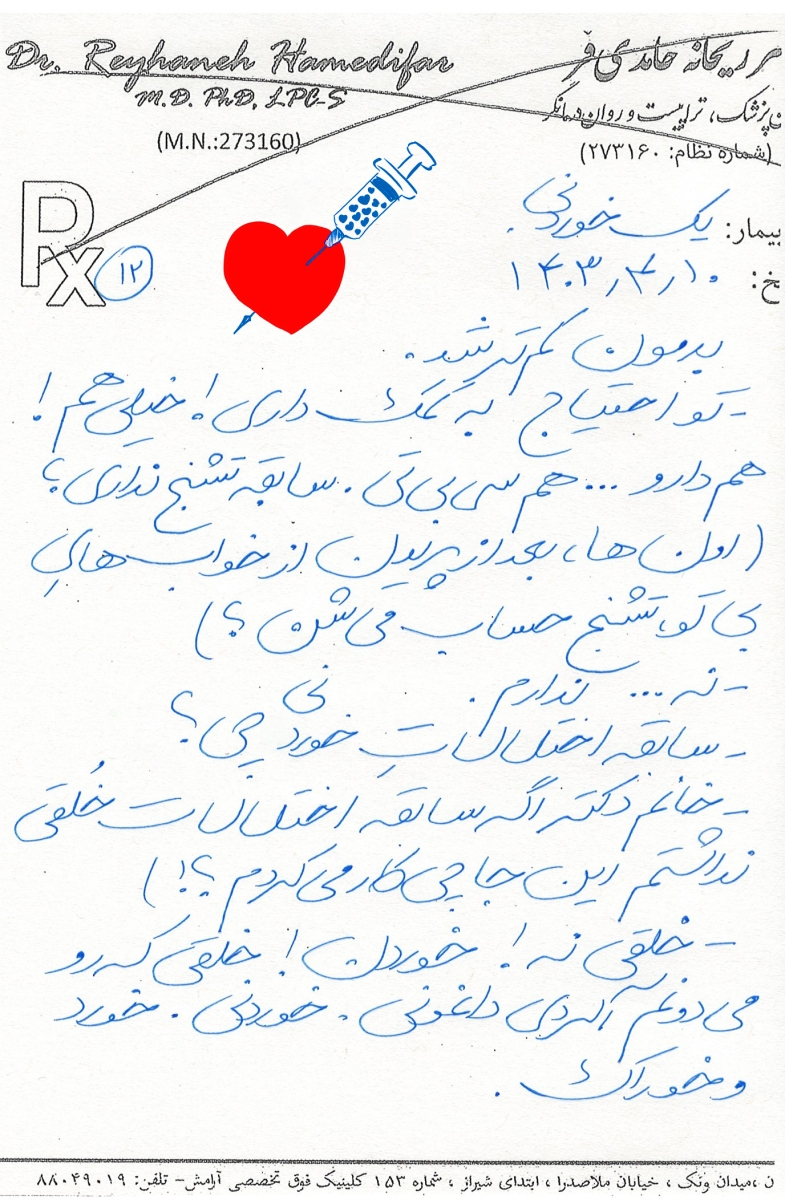 Dr. Reyhaneh Hamedifar
M.D. PhD, LPC-S
(M.N.:273160)
ر ریحانه حامدی فر
ن‌پزشک، تراپیست و روان درمانگر
(شماره نظام: ۲۷۳۱۶۰)
Rx
۱۲
بیمار: یک خوردنی
خ: ۱۴۰۳٫۴٫۱۰
بدمون کم‌تر شد.
- تو احتیاج به کمک داری! خیلی هم!
هم دارو ... هم سی بی تی. سابقه تشنج نداری؟
(اون ها، بعد از پریدن از خواب‌های
بی تو، تشنج حساب می‌شن؟)
- نه ... ندارم.
- سابقه اختلالاتِ خوردنی چی؟
- خانم دکتر اگه سابقه اختلالات خُلقی
نداشتم این جا چی کار می‌کردم؟!)
- خلقی نه! خوردن! خلقی که رو
می دونم آکبردی داغونی. خوردنی. خورد
و خوراک.
ن ،میدان ونک ، خیابان ملاصدرا ، ابتدای شیراز ، شماره ۱۵۳ کلینیک فوق تخصصی آرامش- تلفن: ۸۸۰۴۹۰۱۹